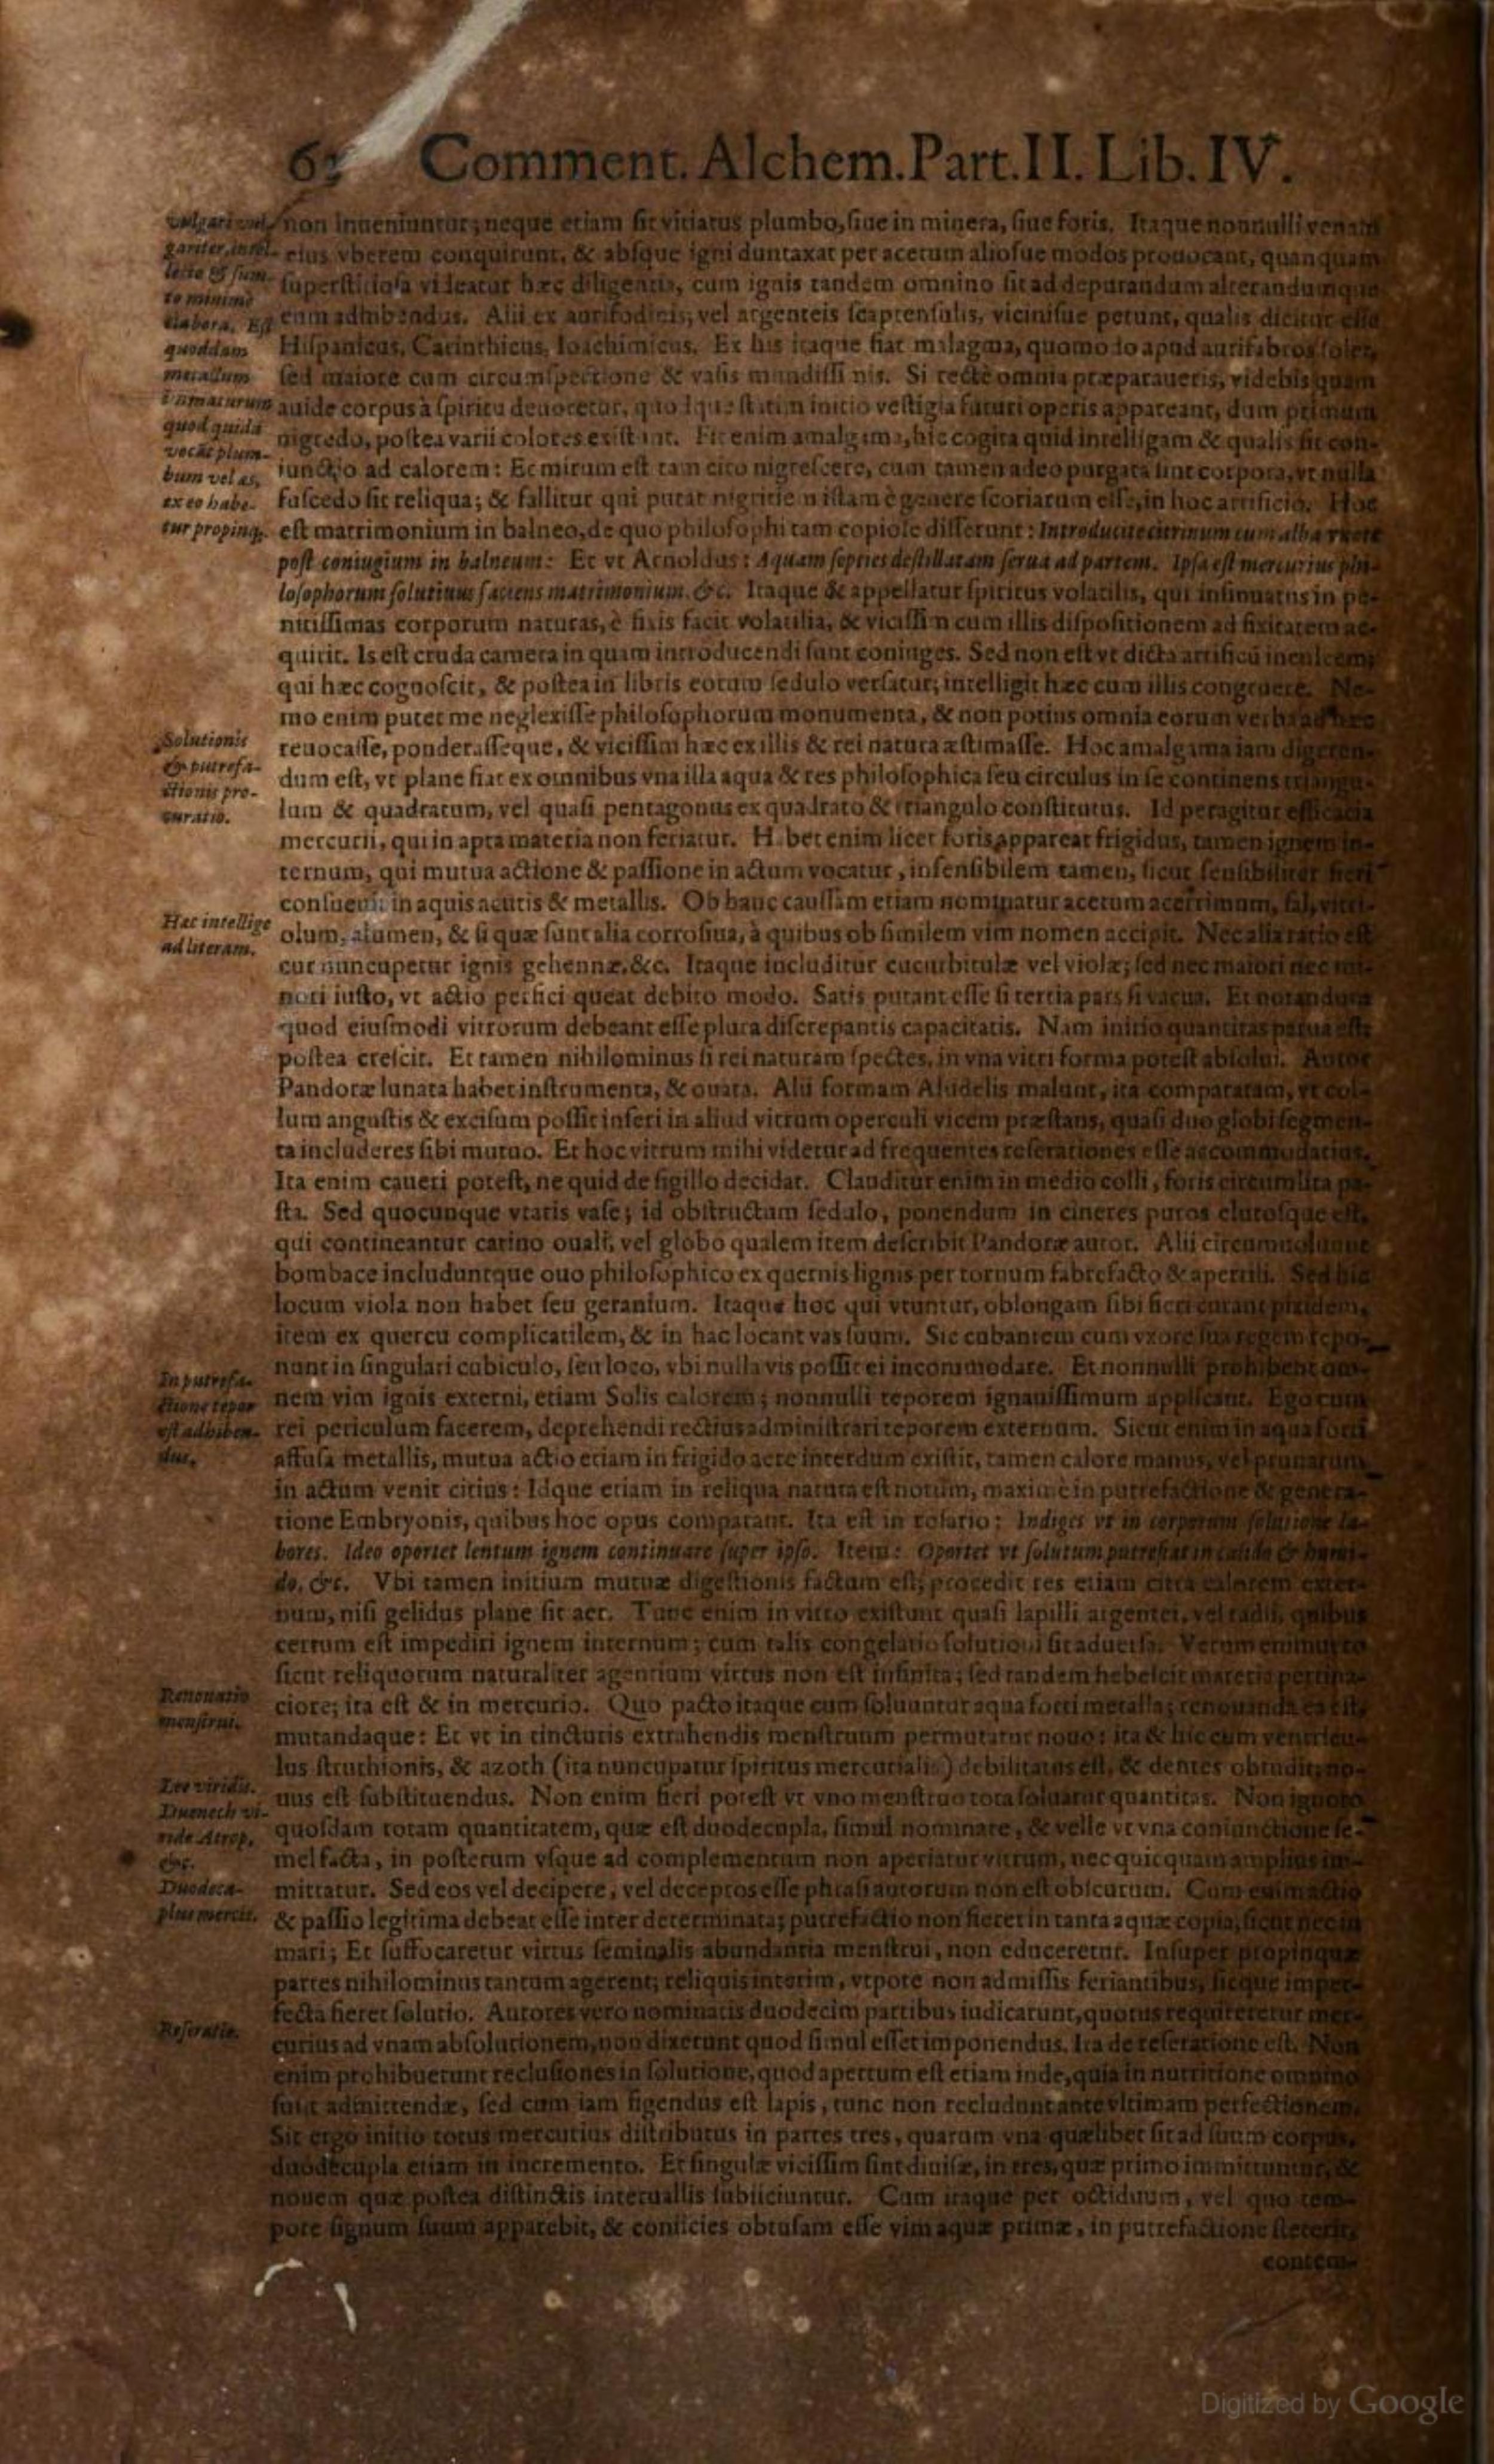 Comment. Alchem. Part. II. Lib. IV.
non inueniuntur; neque etiam sit vitiatus plumbo, siue in minera, siue foris. Itaque nonnulli venam
eius vberem conquirunt, & absque igni duntaxat per acetum aliosue modos prouocant, quanquam
superstitiosa videatur hæc diligentia, cum ignis tandem omnino sit ad depurandum alterandumque
eum adhibendus. Alii ex aurifodinis, vel argenteis scaptensulis, vicinisue petunt, qualis dicitur esse
Hispanicus, Carinthicus, Ioachimicus. Ex his itaque fiat malagma, quomodo apud aurifabros solet,
sed maiore cum circumspectione & vasis mundissimis. Si rectè omnia præparaueris, videbis quam
auide corpus à spiritu deuoretur, quodque statim initio vestigia futuri operis appareant, dum primum
nigredo, postea varii colores existant. Fit enim amalgama, hic cogita quid intelligam & qualis sit con-
iunctio ad calorem: Et mirum est tam cito nigrescere, cum tamen adeo purgata sint corpora, vt nulla
fuscedo sit reliqua; & fallitur qui putat nigritiem istam è genere scoriarum esse, in hoc artificio. Hoc
est matrimonium in balneo, de quo philosophi tam copiose disserunt: Introducite citrinum cum alba vxore
post coniugium in balneum: Et vt Arnoldus: Aquam septies destillatam serua ad partem. Ipsa est mercurius phi-
losophorum solutiuus faciens matrimonium. &c. Itaque & appellatur spiritus volatilis, qui insinuatus in pe-
nitissimas corporum naturas, è fixis facit volatilia, & vicissim cum illis dispositionem ad fixitatem ac-
quirit. Is est cruda camera in quam introducendi sunt coniuges. Sed non est vt dicta artificii inculcem;
qui hæc cognoscit, & postea in libris eorum sedulo versatur, intelligit hæc cum illis congruere. Ne-
mo enim putet me neglexisse philosophorum monumenta, & non potius omnia eorum verba ad hæc
reuocasse, ponderasseque, & vicissim hæc ex illis & rei natura æstimasse. Hoc amalgama iam digeren-
dum est, vt plane fiat ex omnibus vna illa aqua & res philosophica seu circulus in se continens triangu-
lum & quadratum, vel quasi pentagonus ex quadrato & triangulo constitutus. Id peragitur efficacia
mercurii, qui in apta materia non feriatur. Habet enim licet foris appareat frigidus, tamen ignem in-
ternum, qui mutua actione & passione in actum vocatur, insensibilem tamen, sicut sensibiliter fieri
consueuit in aquis acutis & metallis. Ob hanc caussam etiam nominatur acetum acerrimum, sal, vitri-
olum, alumen, & si quæ sunt alia corrosiua, à quibus ob similem vim nomen accipit. Nec alia ratio est
cur nuncupetur ignis gehennæ. &c. Itaque includitur cucurbitulæ vel violæ; sed nec maiori nec mi-
nori iusto, vt actio perfici queat debito modo. Satis putant esse si tertia pars sit vacua. Et notandum
quod eiusmodi vitrorum debeant esse plura discrepantis capacitatis. Nam initio quantitas parua est;
postea crescit. Et tamen nihilominus si rei naturam spectes, in vna vitri forma potest absolui. Autor
Pandoræ lunata habet instrumenta, & ouata. Alii formam Aludelis malunt, ita comparatam, vt col-
lum angustis & excisum possit inseri in aliud vitrum operculi vicem præstans, quasi duo globi segmen-
ta includeres sibi mutuo. Et hoc vitrum mihi videtur ad frequentes reserationes esse accommodatius.
Ita enim caueri potest, ne quid de sigillo decidat. Clauditur enim in medio colli, foris circumlita pa-
sta. Sed quocunque vtaris vase; id obstructum sedulo, ponendum in cineres puros elutosque est,
qui contineantur catino ouali, vel globo qualem item describit Pandoræ autor. Alii circumuoluunt
bombace includuntque ouo philosophico ex quernis lignis per tornum fabrefacto & apertili. Sed hic
locum viola non habet seu geranium. Itaque hoc qui vtuntur, oblongam sibi fieri curant pixidem,
item ex quercu complicatilem, & in hac locant vas suum. Sic cubantem cum vxore sua regem repo-
nunt in singulari cubiculo, seu loco, vbi nulla vis possit ei incommodare. Et nonnulli prohibent om-
nem vim ignis externi, etiam Solis calorem; nonnulli teporem ignauissimum applicant. Ego cum
rei periculum facerem, deprehendi rectius administrari teporem externum. Sicut enim in aqua forti
affusa metallis, mutua actio etiam in frigido aere interdum existit, tamen calore manus, vel prunarum
in actum venit citius: Idque etiam in reliqua natura est notum, maximè in putrefactione & genera-
tione Embryonis, quibus hoc opus comparant. Ita est in rosario: Indiges vt in corporum solutione la-
bores. Ideo oportet lentum ignem continuare super ipso. Item: Oportet vt solutum putrefiat in calido & humi-
do. &c. Vbi tamen initium mutuæ digestionis factum est; procedit res etiam citra calorem exter-
num, nisi gelidus plane sit aer. Tunc enim in vitro existunt quasi lapilli argentei, vel radii, quibus
certum est impediri ignem internum; cum talis congelatio solutioni sit aduersa. Verum enimuero
sicut reliquorum naturaliter agentium virtus non est infinita; sed tandem hebescit materia pertina-
ciore; ita est & in mercurio. Quo pacto itaque cum soluuntur aqua forti metalla; renouanda ea est,
mutandaque: Et vt in tincturis extrahendis menstruum permutatur nouo: ita & hic cum ventricu-
lus struthionis, & azoth (ita nuncupatur spiritus mercurialis) debilitatus est, & dentes obtudit; no-
uus est substituendus. Non enim fieri potest vt vno menstruo tota soluatur quantitas. Non ignoro
quosdam totam quantitatem, quæ est duodecupla, simul nominare, & velle vt vna coniunctione se-
mel facta, in posterum vsque ad complementum non aperiatur vitrum, nec quicquam amplius im-
mittatur. Sed eos vel decipere, vel deceptos esse phrasi autorum non est obscurum. Cum enim actio
& passio legitima debeat esse inter determinata; putrefactio non fieret in tanta aquæ copia, sicut nec in
mari; Et suffocaretur virtus seminalis abundantia menstrui, non educeretur. Insuper propinquæ
partes nihilominus tantum agerent; reliquis interim, vtpote non admissis feriantibus, sicque imper-
fecta fieret solutio. Autores vero nominatis duodecim partibus iudicarunt, quotus requireretur mer-
curius ad vnam absolutionem, non dixerunt quod simul esset imponendus. Ita de reseratione est. Non
enim prohibuerunt reclusiones in solutione, quod apertum est etiam inde, quia in nutritione omnino
sunt admittendæ, sed cum iam figendus est lapis, tunc non recludunt ante vltimam perfectionem.
Sit ergo initio totus mercurius distributus in partes tres, quarum vna quælibet sit ad suum corpus,
duodecupla etiam in incremento. Et singulæ vicissim sint diuisæ, in tres, quæ primo immittuntur, &
nouem quæ postea distinctis interuallis subiiciuntur. Cum itaque per octiduum, vel quo tem-
pore signum suum apparebit, & coniicies obtusam esse vim aquæ primæ, in putrefactione steterit,
contem-
gariter, intel-
lecto & sum-
to minimè
elabora. Est
quoddam
metallum
immaturum
quod quidā
vocāt plum-
bum vel æs,
ex eo habe-
tur propinq;
Solutionis
& putrefa-
ctionis pro-
curatio.
Hæc intellige
ad literam.
In putrefa-
ctione tepor
est adhiben-
dus.
Renouatio
menstrui.
Leo viridis.
Duenech vi-
ride Atrop.
&c.
Duodecu-
plus mercu.
Reseratio.
Digitized by Google